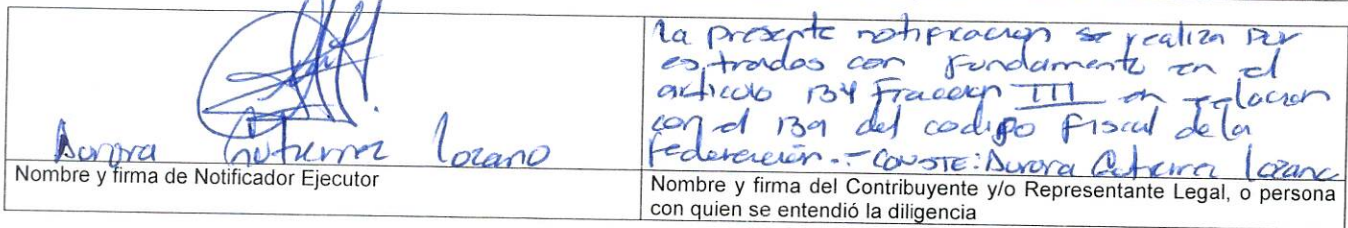 Aurora Gutierrez Lozano
Nombre y firma de Notificador Ejecutor
la presente notificacion se realiza por
estrados con fundamento en el
articulo 134 Fraccion III en relacion
con el 139 del codigo fiscal de la
federación.- CONSTE: Aurora Gutierrez Lozano
Nombre y firma del Contribuyente y/o Representante Legal, o persona
con quien se entendió la diligencia